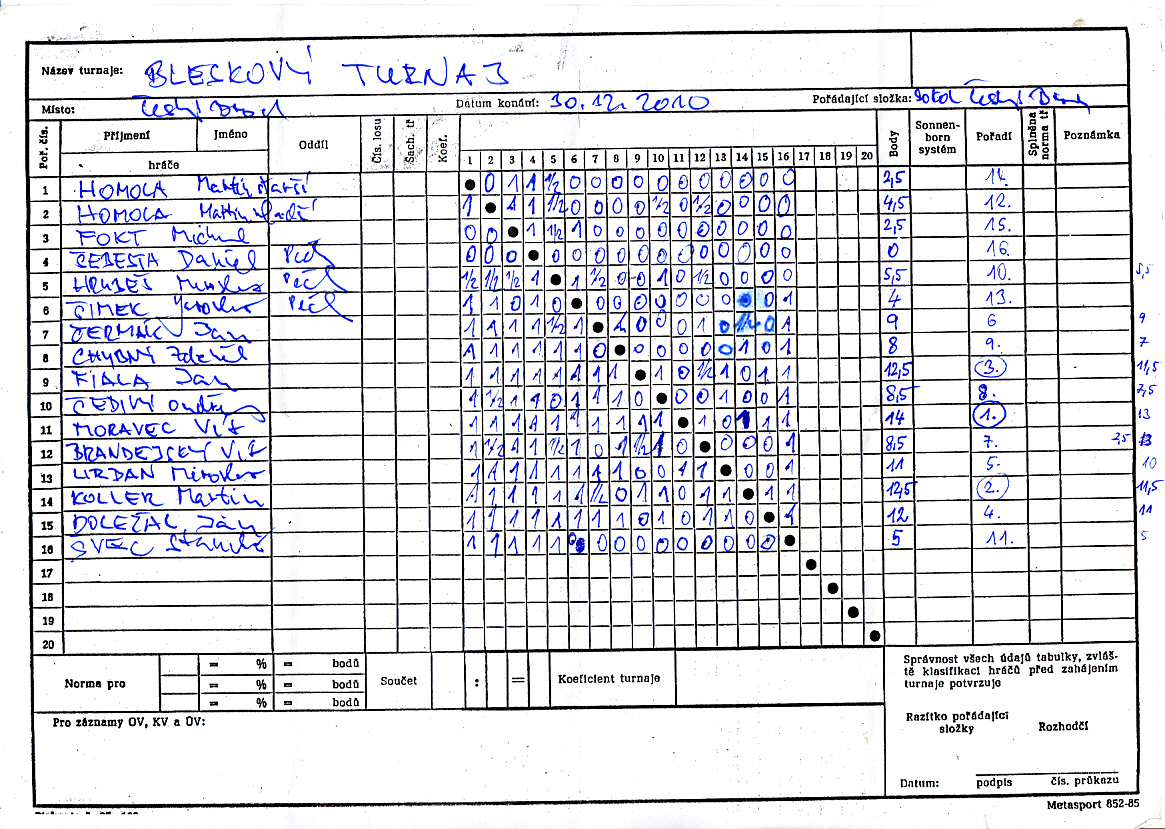 Název turnaje: BLESKOVÝ TURNAJ
Místo: Český Brod Datum konání: 30.12.2010 Pořádající složka: Sokol Český Brod
Poř. čís. Příjmení Jméno hráče Oddíl Čís. losu Šach. tř Koef. 1 2 3 4 5 6 7 8 9 10 11 12 13 14 15 16 17 18 19 20 Body Sonnenborn systém Pořadí Splněna norma tř Poznámka
1 HOMOLA Martin starší ● 0 1 1 1/2 0 0 0 0 0 0 0 0 0 0 0 2,5 14.
2 HOMOLA Martin mladší 1 ● 1 1 1/2 0 0 0 0 1/2 0 1/2 0 0 0 0 4,5 12.
3 FOKT Michal 0 0 ● 1 1/2 1 0 0 0 0 0 0 0 0 0 0 2,5 15.
4 ČEBESTA Daniel Peč 0 0 0 ● 0 0 0 0 0 0 0 0 0 0 0 0 0 16.
5 HRUBEŠ Peč 1/2 1/2 1/2 1 ● 1 1/2 0 0 1 0 1/2 0 0 0 0 5,5 10. 5,5
6 ŠIMEK Jaroslav Peč 1 1 0 1 0 ● 0 0 0 0 0 0 0 0 1 4 13.
7 ČERMÁK Jan 1 1 1 1 1/2 1 ● 1 0 0 0 1 0 1/2 0 1 9 6 9
8 CHYBNÝ Zdeněk 1 1 1 1 1 1 0 ● 0 0 0 0 0 1 0 1 8 9. 7
9 FIALA Jan 1 1 1 1 1 1 1 1 ● 1 0 1/2 1 0 1 1 12,5 3. 11,5
10 ŠEDIVÝ Ondřej 1 1/2 1 1 0 1 1 1 0 ● 0 0 1 0 0 1 8,5 8. 7,5
11 MORAVEC Vít 1 1 1 1 1 1 1 1 1 1 ● 1 0 1 1 1 14 1. 13
12 BRANDEJSKÝ Vít 1 1/2 1 1 1/2 1 0 1 1/2 1 0 ● 0 0 0 1 8,5 7. 7,5
13 URBAN Miroslav 1 1 1 1 1 1 1 1 0 0 1 1 ● 0 0 1 11 5. 10
14 KOLLER Martin 1 1 1 1 1 1 1/2 0 1 1 0 1 1 ● 1 1 12,5 2. 11,5
15 DOLEŽAL Ján 1 1 1 1 1 1 1 1 0 1 0 1 1 0 ● 1 12 4. 11
16 ŠVEC 1 1 1 1 1 0 0 0 0 0 0 0 0 0 0 ● 5 11. 5
17 ●
18 ●
19 ●
20 ●
Norma pro = % = bodů Součet : = Koeficient turnaje
= % = bodů
= % = bodů
Pro záznamy OV, KV a ÚV:
Správnost všech údajů tabulky, zvláště klasifikaci hráčů před zahájením turnaje potvrzuje
Razítko pořádající složky Rozhodčí
Datum: podpis čís. průkazu
Metasport 852-85